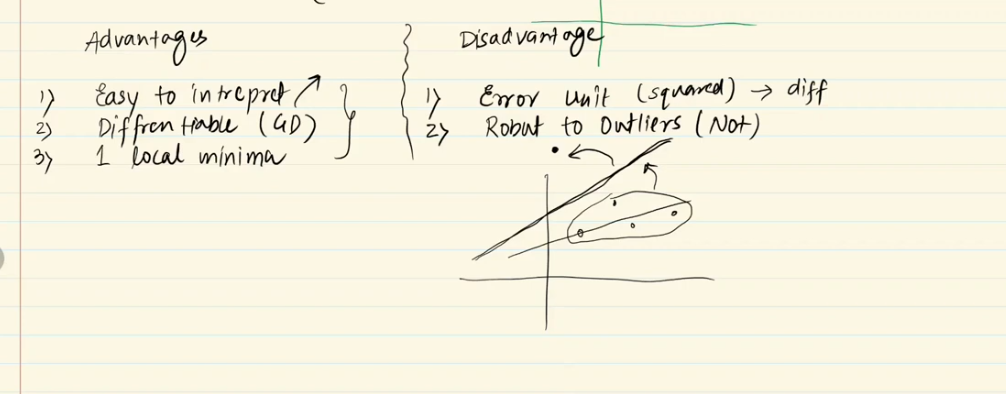 Advantages
1) Easy to intrepret
2) Diffrentiable (GD)
3) 1 local minima
Disadvantage
1) Error unit (squared) → diff
2) Robut to Outliers (Not)